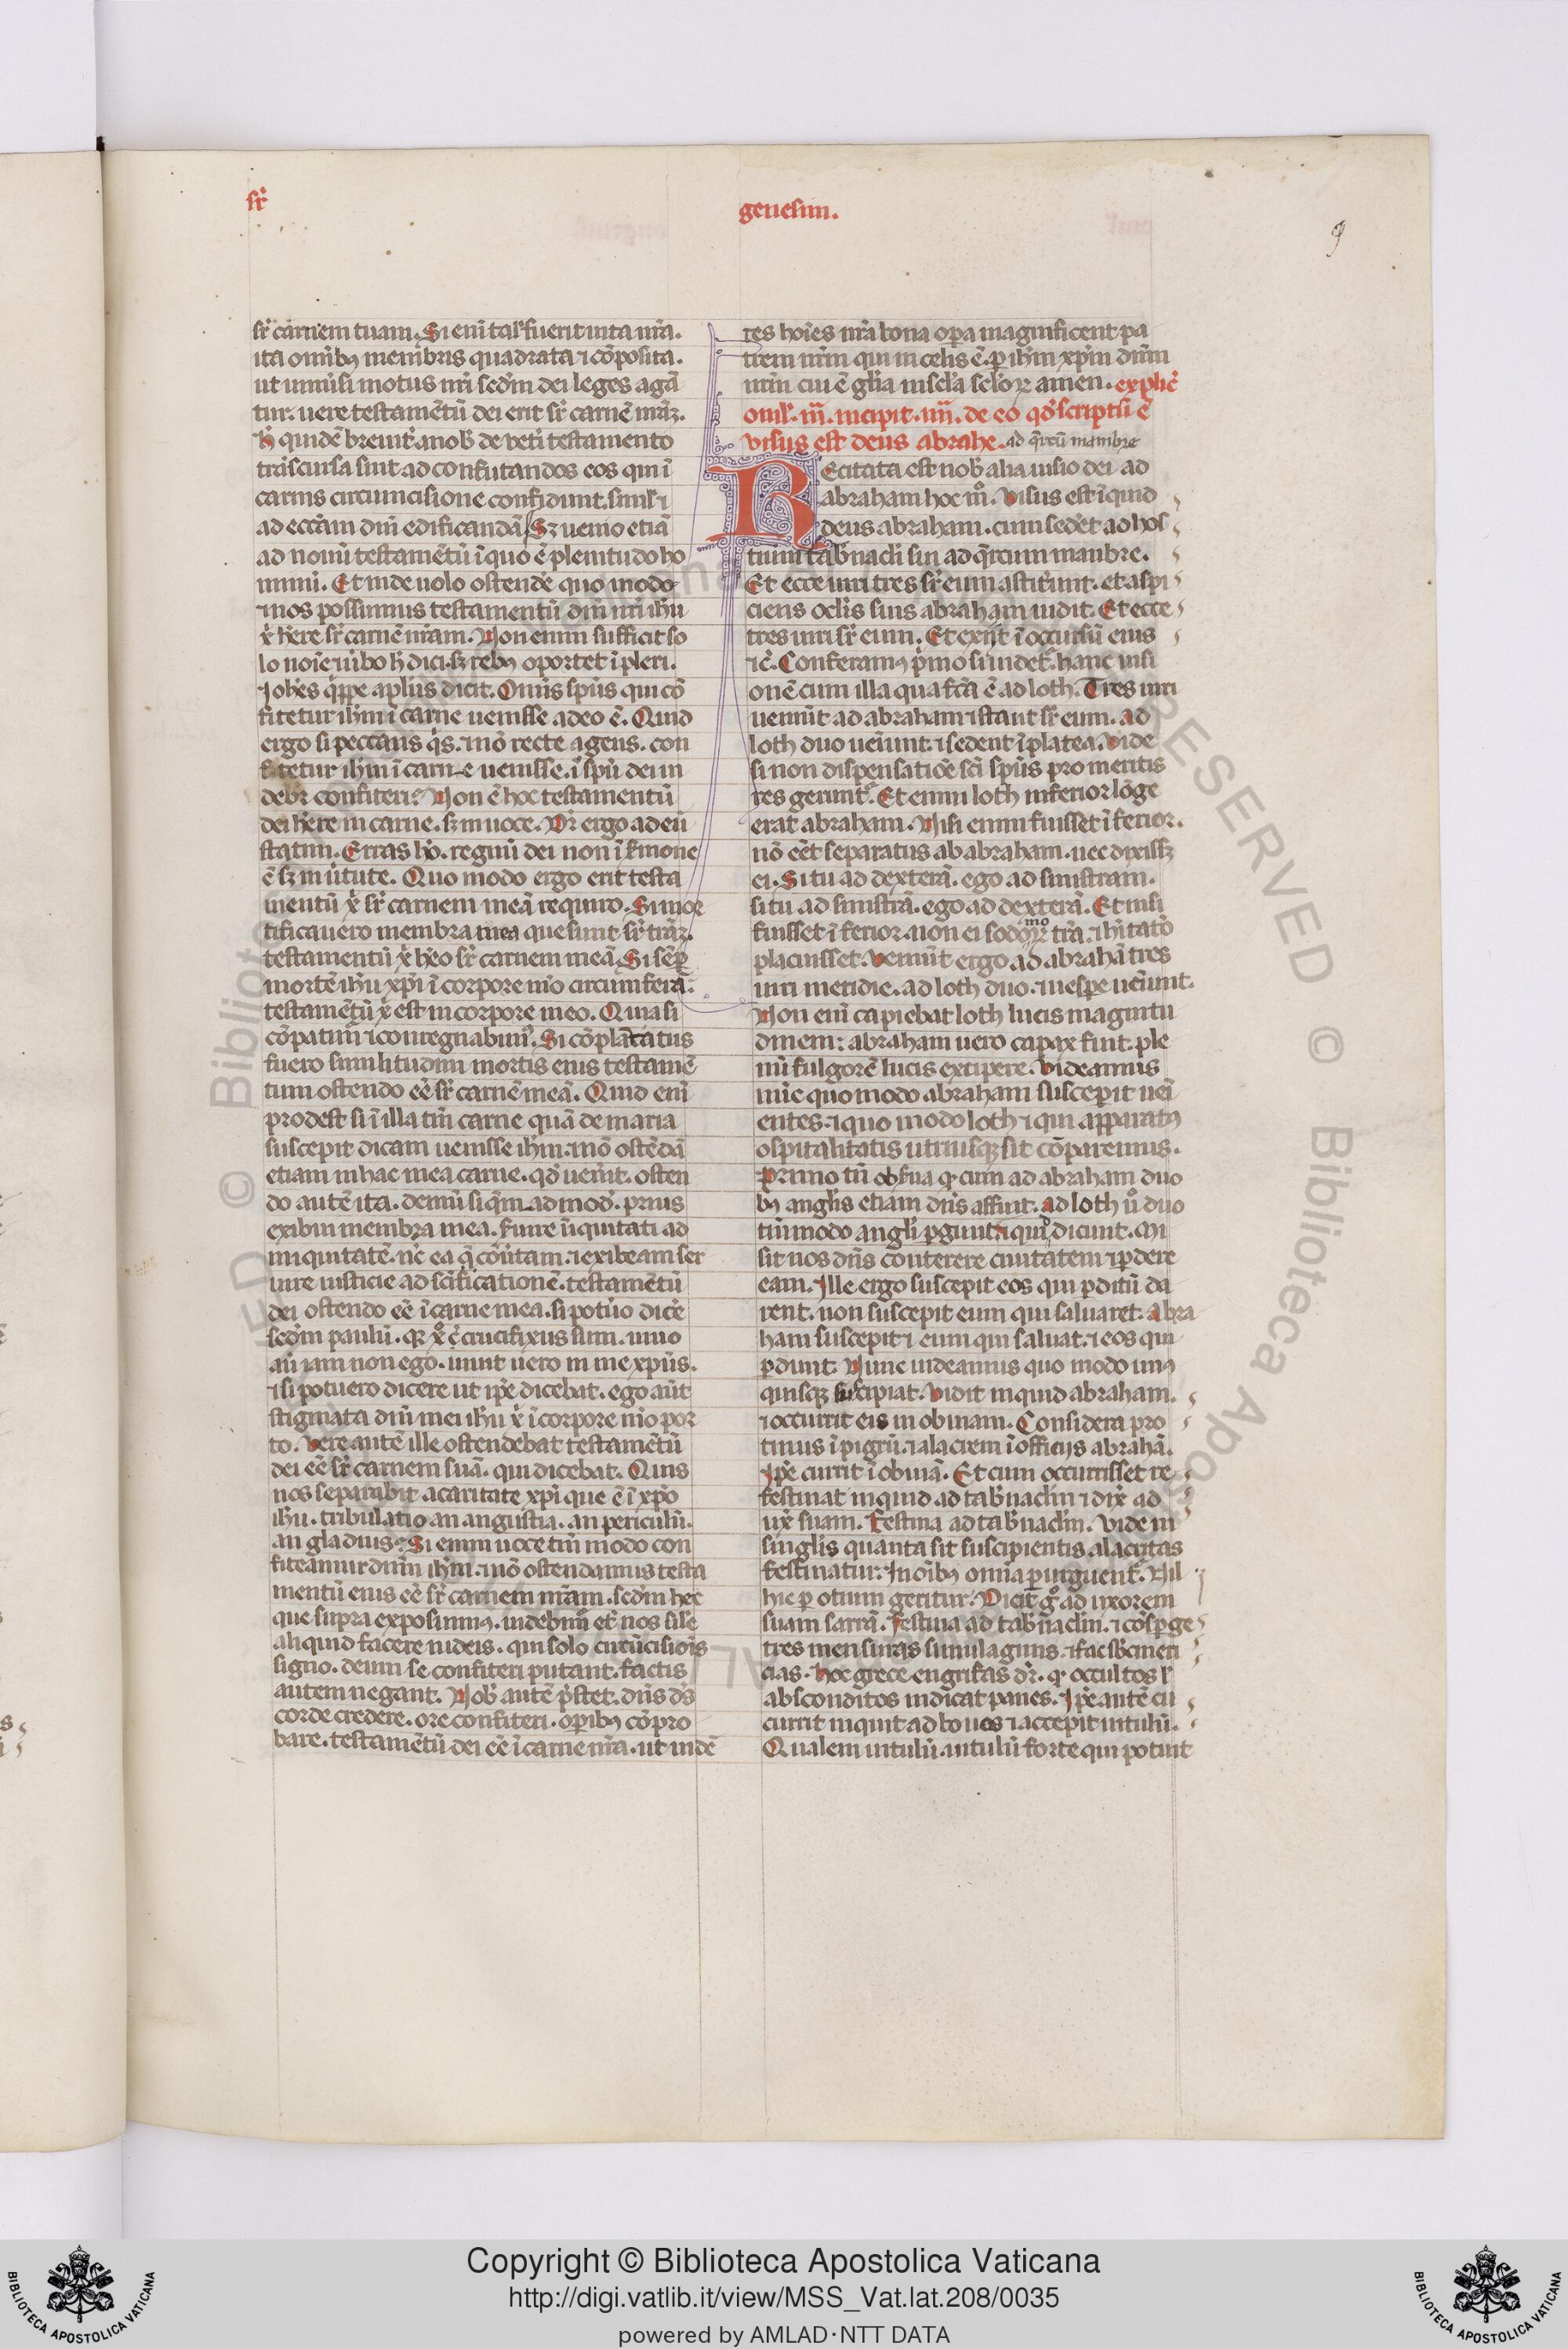 sr̃
genesim.
9
sr̃ carnem tuam. Si eni᷑ tal' fuerit uita nr̃a.
ita omĩb' menbris quadrata ⁊ cõposita.
ut uniuᷤi motus nr̃i scd̃m dei leges agã
tur. uere testamẽtũ dei erit sr̃ carnẽ nr̃aꝫ.
h̃ quidẽ breuit᷑. a nob' de veti' testamento
trãscursa sint ad confutandos eos qui ĩ
carnis circuncisione confidunt. simł ⁊
ad eccłam dñi edificandã. Sꝫ uenio etiã
ad nouũ testamẽtũ ĩ quo ẽ plenitudo bo
norũ. Et inde uolo ostendẽ quo modo
⁊ nos possimus testamentũ dñi nr̃i ihũ
x̃ h̃ere sr̃ carnẽ nr̃am. Non enim sufficit so
lo noĩe ⁊ u᷑bo h̃ dici. sꝫ rebꝫ oportet ĩpleri.
Ioh̃es q̃ppe apłus dicit. Omĩs sp̃us qui cõ
fitetur ihm̃ ĩ carne uenisse a deo ẽ. Quid
ergo si peccãns q̃s. ⁊ nõ recte agens. con
fitetur ihm̃ ĩ carne uenisse. ĩ sp̃u dei ui
deb᷑ confiteri? Non ẽ hoc testamentũ
dei h̃ere in carne. sꝫ in uoce. Dr̃ ergo ad eũ
statim. Erras hõ. regnũ dei non ĩ s̃mone
ẽ sꝫ in u᷑tute. Quo modo ergo erit testa
mentũ x̃ sr̃ carnem meã requiro. Si mor
tificauero membra mea que sunt sr̃ trãꝫ.
testamentũ x̃ h̃eo sr̃ carnem meã. Si sẽꝑ
mortẽ ihũ xp̃i ĩ corpore m̃o circumferã.
testamẽtũ x̃ est in corpore meo. Quia si
cõpatim᷑ ⁊ conregnabim'. Si cõplãtatus
fuero similitudini mortis eius testamẽ
tum ostendo eẽ sr̃ carnẽ meã. Quid eni᷑
prodest si ĩ illa tm̃ carne quã de maria
suscepit dicam uenisse ihm̃. ⁊ nõ ostẽdã
etiam in hac mea carne. qd̃ uen᷑it. osten
do autẽ ita. demũ si q̃m ad mod̃. prius
exibui membra mea. s̃uire ĩiquitati ad
iniquitatẽ. nc̃ ea q̃ cõu᷑tam. ⁊ exibeam ser
uire iusticie ad sc̃ificationẽ. testamẽtũ
dei ostendo eẽ ĩ carne mea. si potũo dicẽ
scd̃m paulũ. qꝛ x̃o cc̃ crucifixus sum. uiuo
aũ iam non ego. uiuit uero in me xp̃us.
⁊ si potuero dicere ut ip̃e dicebat. ego aũt
stigmata dñi mei ihũ x̃ ĩ corpore m̃o por
to. Vere autẽ ille ostendebat testamẽtũ
dei eẽ sr̃ carnem suã. qui dicebat. Quis
nos separabit a caritate xp̃i que ẽ ĩ xp̃o
ihũ. tribulatio an angustia. an periculũ.
an gladius? Si enim uoce tm̃ modo con
fiteamur dñm ihm̃. ⁊ nõ ostendamus testa
mentũ eius eẽ sr̃ carnem nr̃am. scd̃m hec
que supra exposuimꝰ. uidebim᷑ et nos sil'e
aliquid facere iudeis. qui solo circũcisiõis
signo. deum se confiteri putant. factis
autem negant. Nob' autẽ p̃stet. dñs dš
corde credere. ore confiteri. oꝑibꝫ cõpro
bare. testamẽtũ dei eẽ ĩ carne nr̃a. ut uidẽ
tes hoĩes nr̃a bona oꝑa magnificent pa
trem nr̃m qui in celis ẽ. ꝑ ihm̃ xp̃m dñm
nr̃m cui ẽ gł'ia in scł'a scł'oꝝ amen. explic̃
omł'. iij. incipit. iiij. de eo qd̃ scriptũ ẽ
visus est deus abrahe. ad q̃rcũ mambre
Recitata est nob' alia uisio dei ad
abraham hoc mo. Visus est ĩquid
deus abraham. cum sed̃et ad hos
tium tab᷑nacłi sui ad q̃rcum manbre.
Et ecce uiri tres sr̃ eum astit᷑unt. et aspi
ciens oclis suis abraham uidit. Et ecce
tres uiri sr̃ eum. Et exijt ĩ occursũ eius
⁊c̃. Conferamꝰ p̃mo si uidet᷑. hanc uisi
onẽ cum illa qua fc̃a ẽ ad loth. Tres uiri
ueniũt ad abraham ⁊ stant sr̃ eum. ad
loth duo ueniunt. ⁊ sedent ĩ platea. Vide
si non dispensatiõe sc̃i sp̃us pro meritis
res gerunt᷑. Et enim loth inferior lõge
erat abraham. Nisi enim fuisset ĩferior.
nõ eẽt separatus ab abraham. nec dixissꝫ
ei. Si tu ad dexterã. ego ad sinistram.
si tu ad sinistrã. ego ad dexterã. Et nisi
fuisset ĩferior. non ei sodomoꝝ tr̃a. ⁊ h̃itatõ
placuisset. Veniũt ergo ad abrahã tres
uiri meridie. ad loth duo. ⁊ uespe ueniunt.
Non eni᷑ capiebat loth lucis magnitu
dinem: abraham uero capax fuit. ple
nũ fulgorẽ lucis excipere. Videamus
nũc quo modo abraham suscepit ueĩ
entes. ⁊ quo modo loth ⁊ qui apparatꝰ
ospitalitatis utriusqꝫ sit cõparemus.
Primo tñ obs̃ua qꝛ cum ad abraham duo
bꝫ angłis etiam dñs affuit. ad loth uo duo
tm̃modo angłi ꝑgunt ⁊ qui dicunt. Mi
sit nos dñs conterere ciuitatem ⁊ ꝑdere
eam. Ille ergo suscepit eos qui ꝑditũ da
rent. non suscepit eum qui saluaret. Abra
ham suscepit ⁊ eum qui saluat. ⁊ eos qui
ꝑdunt. Nunc uideamus quo modo unꝰ
quisqꝫ suscipiat. Vidit inquid abraham.
⁊ occurrit eis in obuiam. Considera pro
tinus ĩpigrũ. ⁊ alacrem ĩ officijs abrahã.
Ip̃e currit ĩ obuiã. Et cum occurrisset re
festinat inquid ad tab᷑naclm̃ ⁊ dix̃ ad
ux̃ suam. Festina ad tab᷑naclm̃. Vide in
singlis quanta sit suscipientis alacritas
festinatur. Inoĩbꝫ omnia ꝑurguent᷑. Nil
hic ꝑ otium geritur. Dicit go ad uxorem
suam sarrã. Festina ad tab᷑naclm̃. ⁊ cõsꝑge
tres mensuras simulaginis. ⁊ fac sb̃cineri
cias. Hoc grece engrifas dr̃. qꝛ occultos ł
absconditos indicat panes. Ip̃e autẽ cu
currit inquit ad boues ⁊ accepit uitulũ.
Qualem uitulũ. uitulũ forte qui potuit
Copyright © Biblioteca Apostolica Vaticana
http://digi.vatlib.it/view/MSS_Vat.lat.208/0035
powered by AMLAD·NTT DATA